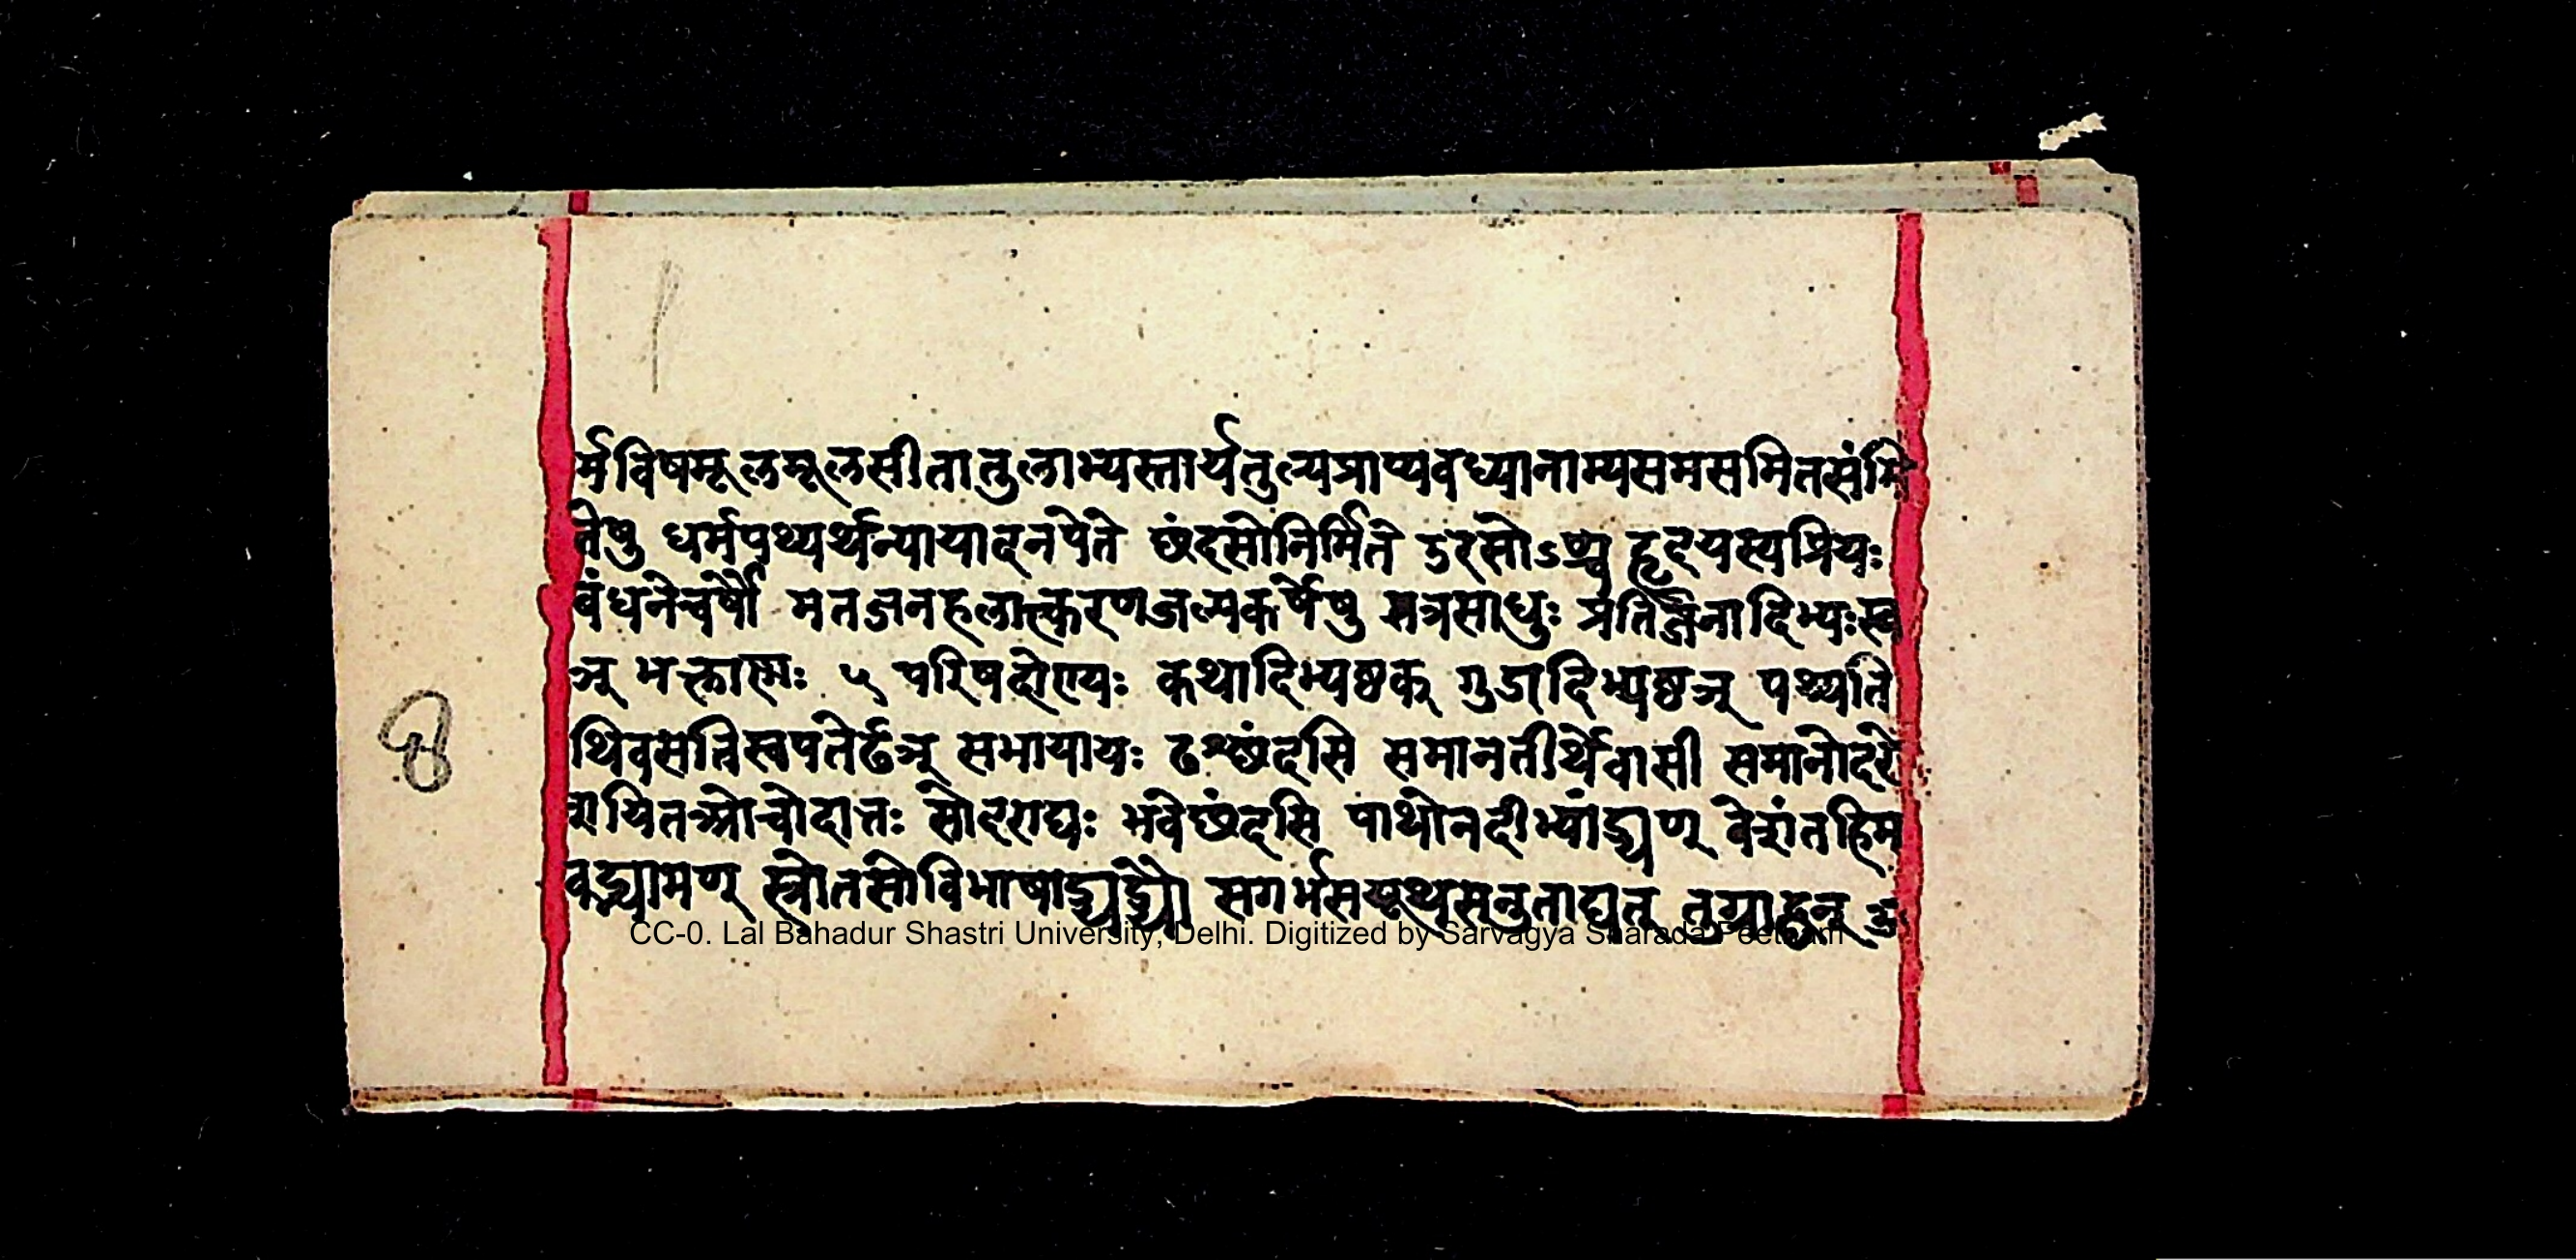 र्मविषमूलमूलसीतातुलाभ्यस्तार्यतुल्यप्राप्यवध्यानाम्यसमसमितसंमि
तेषु धर्मपथ्यर्थन्यायादनपेते छंदसोनिर्मिते उरसोऽण्च हृदयस्यप्रियः
बंधनेचर्षौ मतजनहलात्करणजल्पकर्षेषु तत्रसाधुः प्रतिजनादिभ्यःख
ञ् भक्ताण्णः ५ परिषदोण्यः कथादिभ्यष्ठक् गुडादिभ्यष्ठञ् पथ्यति
थिवसतिस्वपतेर्ढञ् सभायायः ढश्छंदसि समानतीर्थेवासी समानोदरे
शयितओचोदात्तः सोदराद्यः भवेछंदसि पाथोनदीभ्यांड्यण् वेशंतहिम
वद्भ्यामण् स्त्रोतसोविभाषाड्यड्यौ सगर्भसयूथसनुताद्यत् तुग्राद्घन्
CC-0. Lal Bahadur Shastri University, Delhi. Digitized by Sarvagya Sharada Peetham